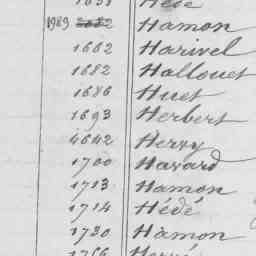 1989 2032 Hamon
1662 Harivel
1682 Hallouet
1686 Huet
1693 Herbert
4642 Hervy
1700 Havard
1713 Hamon
1714 Hédé
1730 Hamon